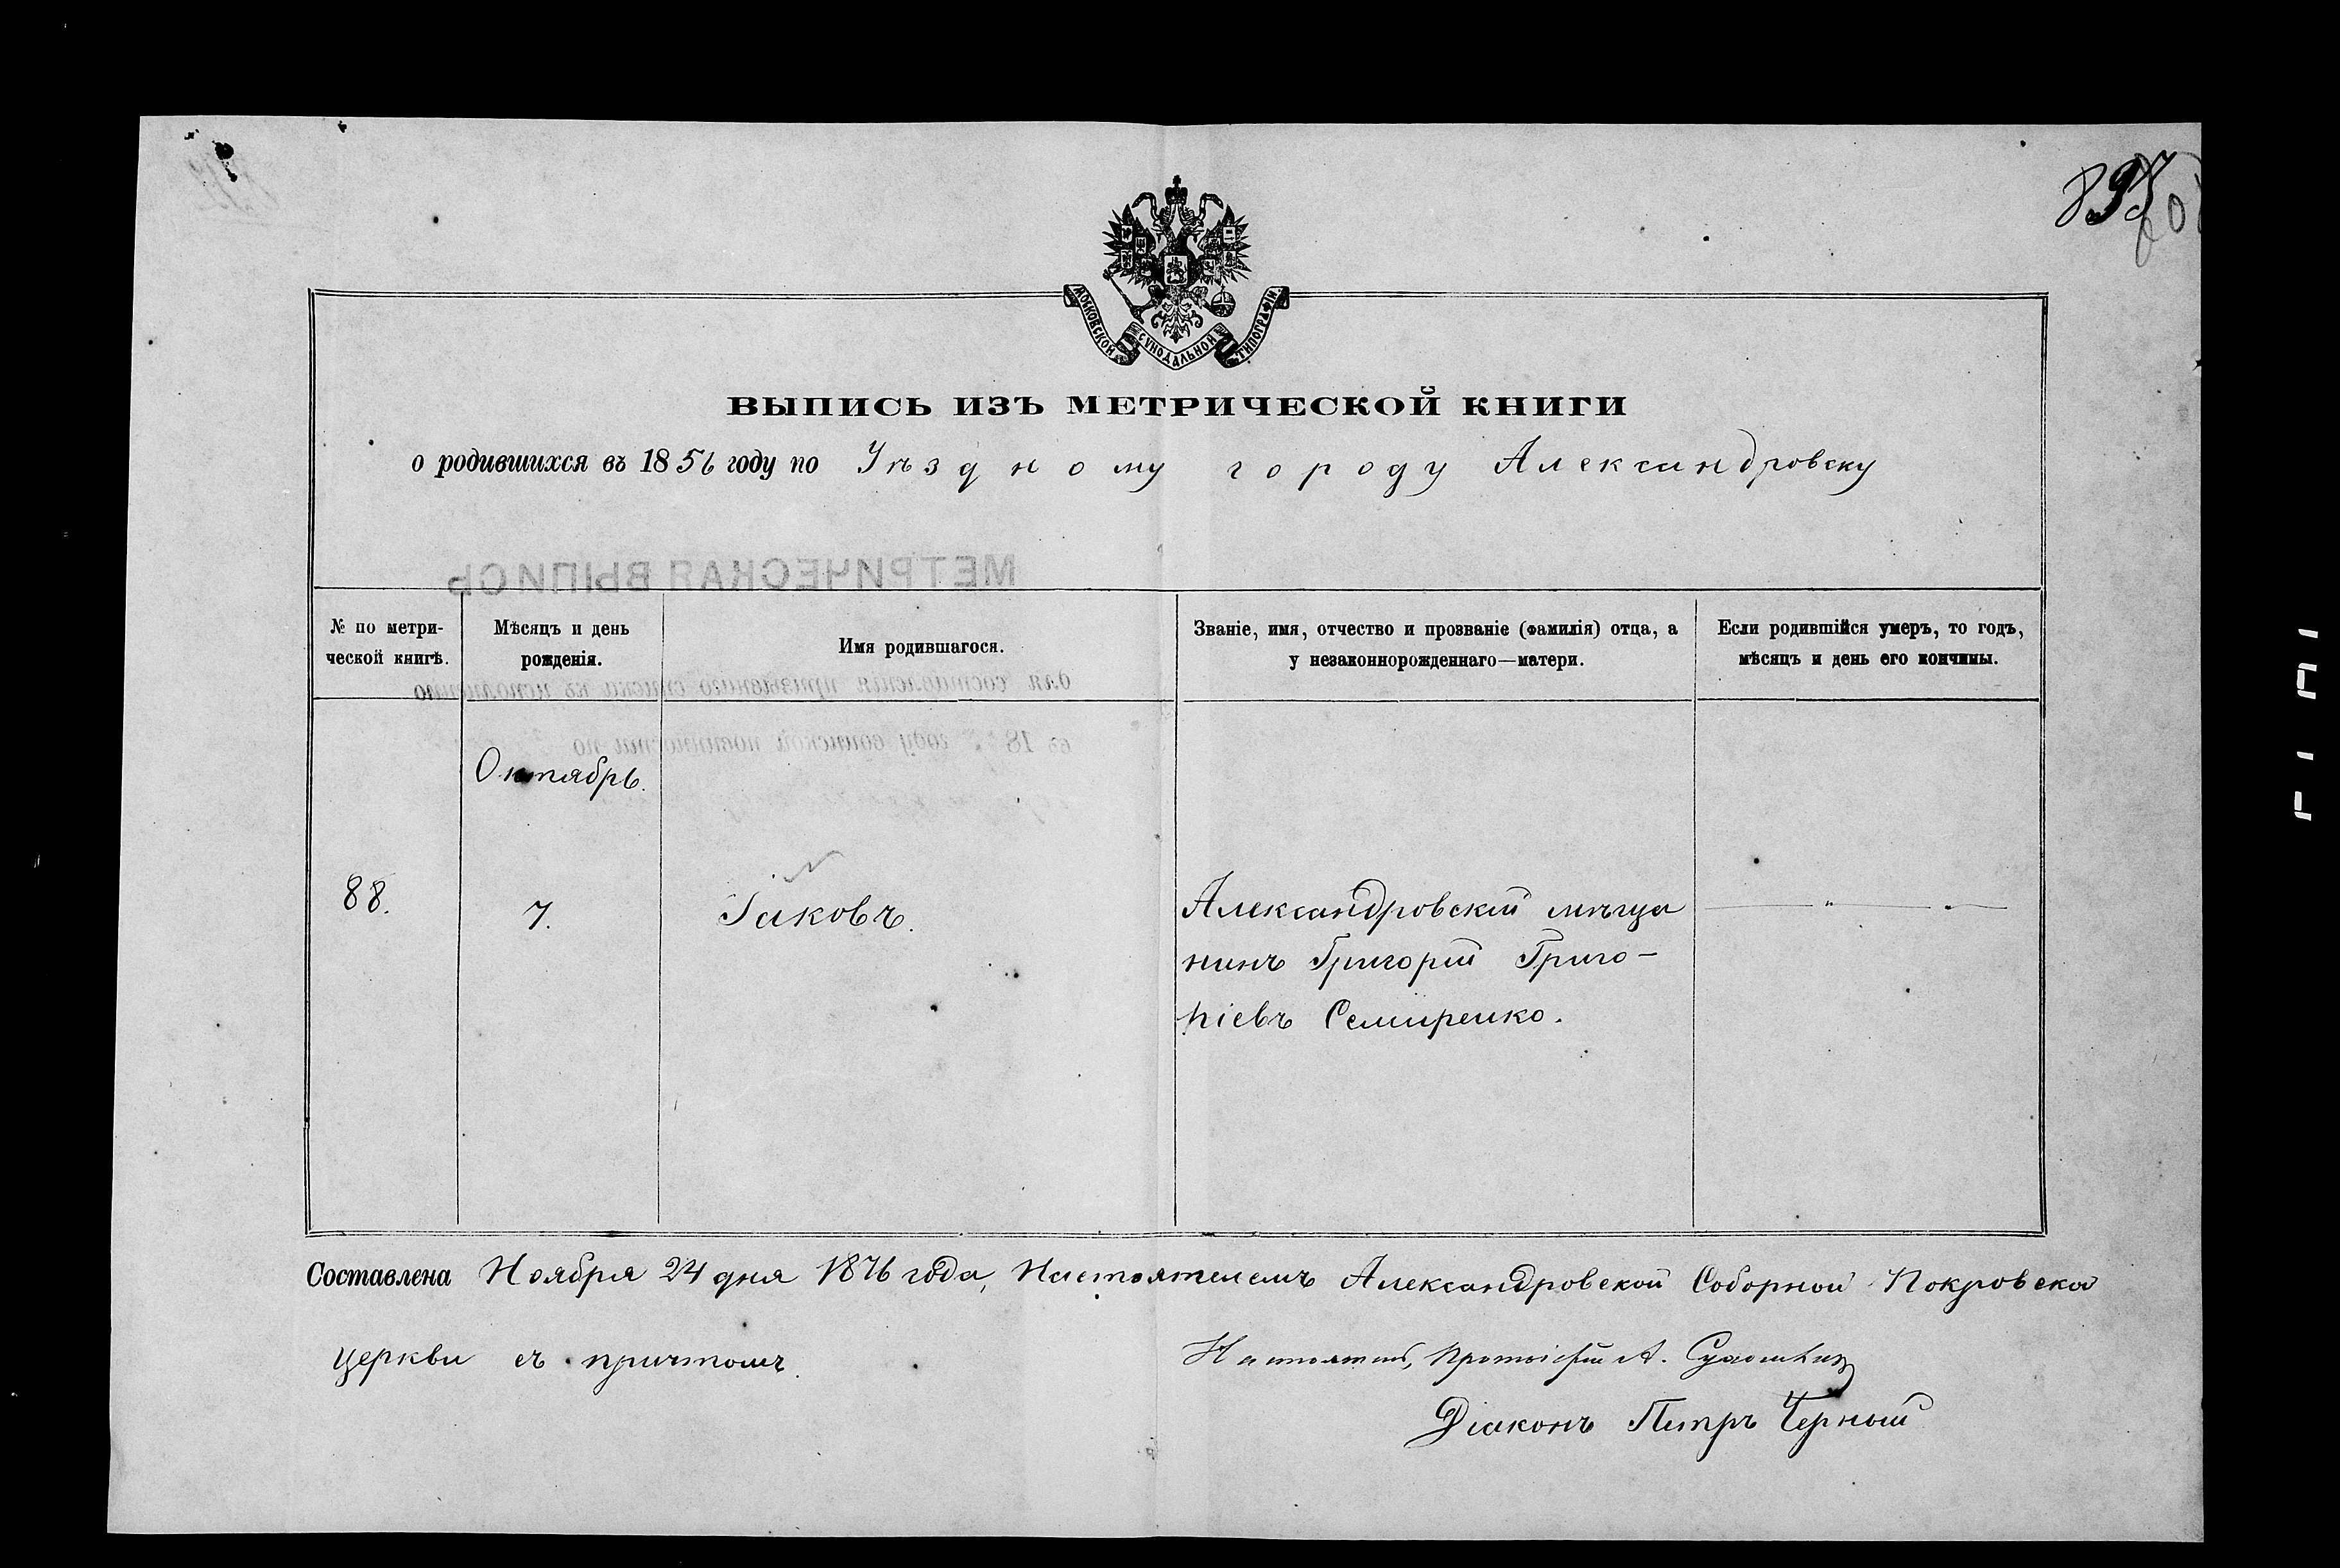 895
МОСКОВСКОЙ СУНОДАЛЬНОЙ ТИПОГРАФІИ.
ВЫПИСЬ ИЗЪ МЕТРИЧЕСКОЙ КНИГИ
о родившихся въ 1856 году по Уѣздному городу Александровску
МЕТРИЧЕСКАЯ ВЫПИСЬ
№ по метри-
ческой книгѣ.
Мѣсяцъ и день
рожденія.
Имя родившагося.
Званіе, имя, отчество и прозваніе (фамилія) отца, а
у незаконнорожденнаго—матери.
Если родившійся умеръ, то годъ,
мѣсяцъ и день его кончины.
для составленія призывнаго списка къ исполненію
въ 18 году воинской повинности по
Октябрь.
88.
7.
Іаковъ.
Александровскій мѣща
нинъ Григорій Григо-
ріевъ Семиренко.
Составлена Ноября 24 дня 1876 года, Настоятелемъ Александровской Соборной Покровской
церкви съ причтомъ.
Настоятель, Протоіерей А.
Діаконъ Петръ Черный